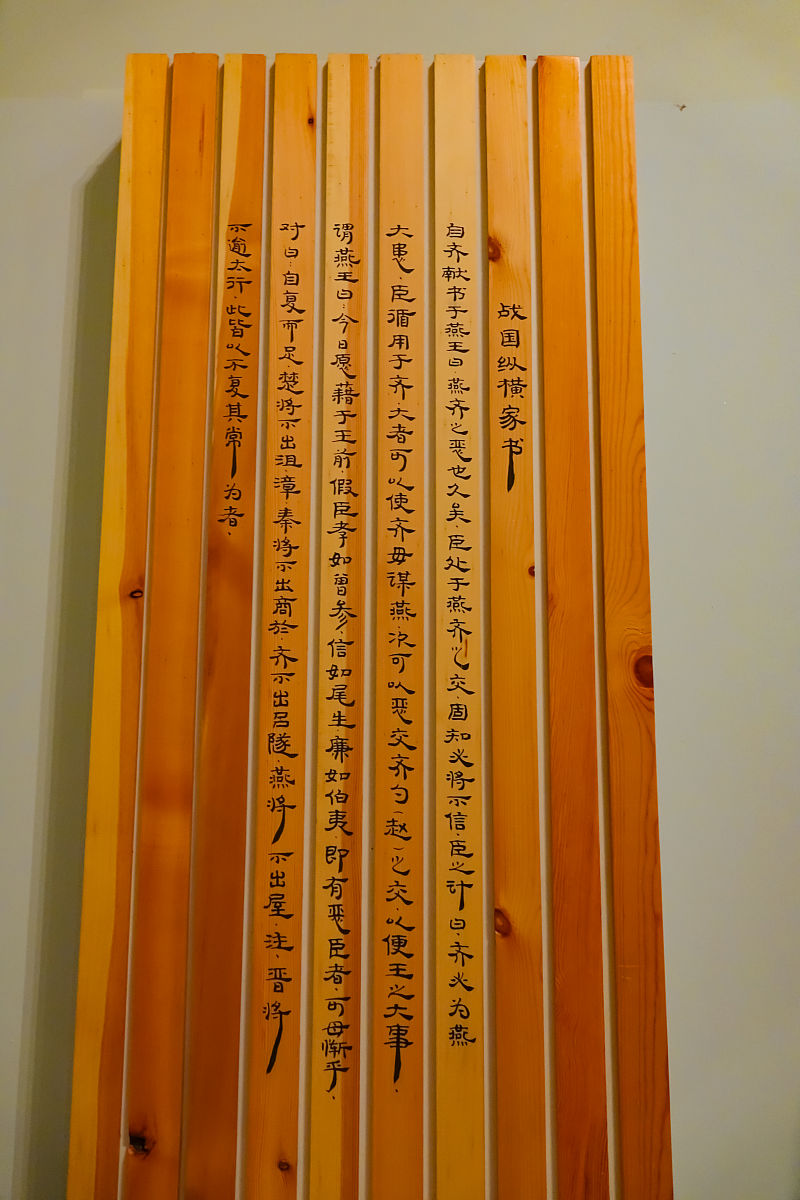 战国纵横家书
自齐献书于燕王曰、燕齐之恶也久矣、臣处于燕齐之交、固知必将不信、臣之计曰、齐必为燕
大患、臣循用于齐、大者可以使齐毋谋燕、次可以恶交齐勺（赵）之交、以便王之大事、
谓燕王曰：今日愿藉于王前、假臣孝如曾参、信如尾生、廉如伯夷、即有恶臣者、可毋惭乎、
对曰：自复而足、楚将不出沮、漳、秦将不出商於、齐不出吕隧、燕将不出屋、注、晋将
不逾太行、此皆以不复其常为者、